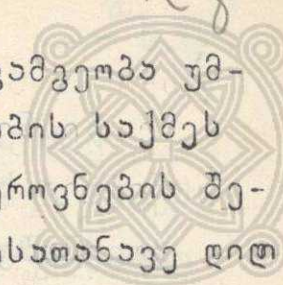 გამგეობა უმ-
ბის საქმეს
ეროვნების შე-
სათანავე დიდ